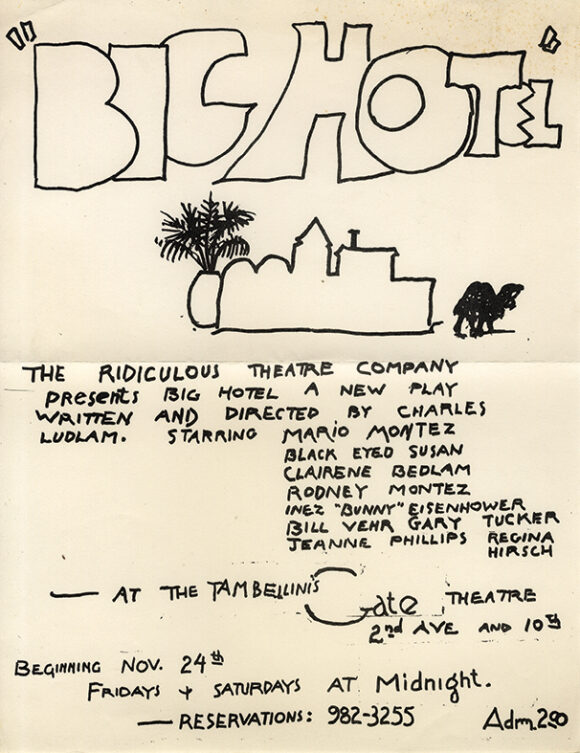 "BIG HOTEL"
THE RIDICULOUS THEATRE COMPANY
presents BIG HOTEL A NEW PLAY
WRITTEN AND DIRECTED BY CHARLES
LUDLAM. STARRING MARIO MONTEZ
BLACK EYED SUSAN
CLAIRENE BEDLAM
RODNEY MONTEZ
INEZ "BUNNY" EISENHOWER
BILL VEHR GARY TUCKER
JEANNE PHILLIPS REGINA
HIRSCH
— AT THE TAMBELLINI'S Gate THEATRE
2nd AVE AND 10th
BEGINNING NOV. 24th
FRIDAYS & SATURDAYS AT Midnight.
— RESERVATIONS: 982-3255 Adm. 2.00